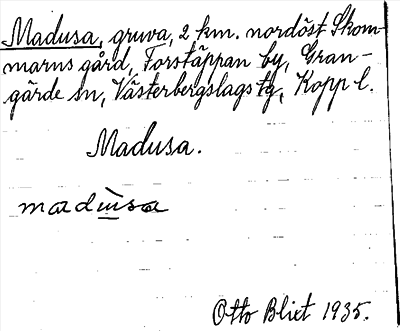 Madusa, gruva, 2 km. nordöst Skom-
marns gård, Torstäppan by, Gran-
gärde sn, Västerbergslags tg, Kopp l.
Madusa.
madùsa
Otto Blixt 1935.